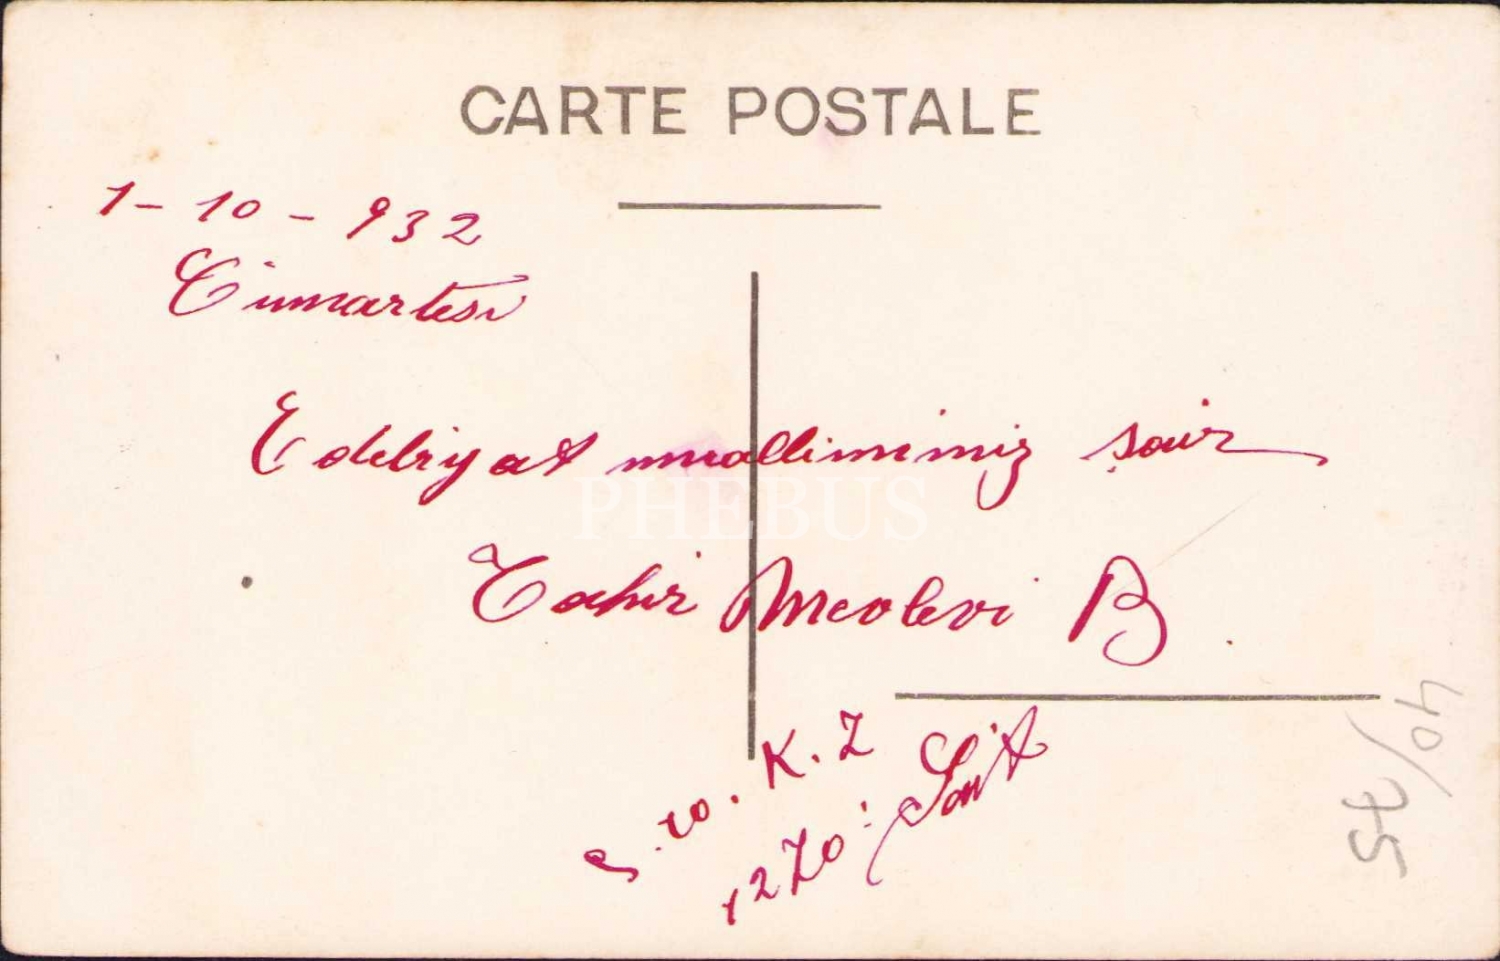 CARTE POSTALE
1-10-932
Cumartesi
Edebiyat muallimimiz şair
PHEBUS
Tahir Mevlevi B
S. 10. K. Z
1270: Sait
40/75